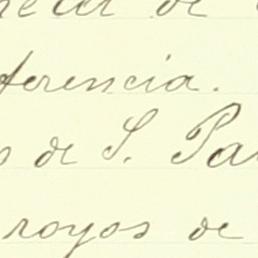 de
ferencia.
s de S. Pa
royos de